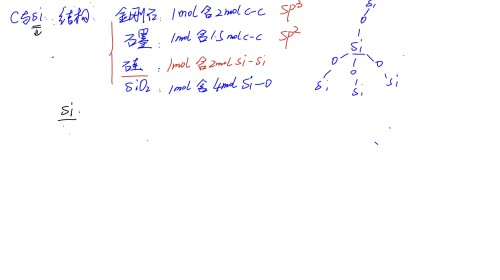 C与Si 结构 金刚石: 1mol含2molC-C sp³
石墨: 1mol含1.5molC-C sp²
硅: 1mol含2molSi-Si
SiO₂: 1mol含4molSi-O
Si
O
Si
O O O
Si Si Si
Si